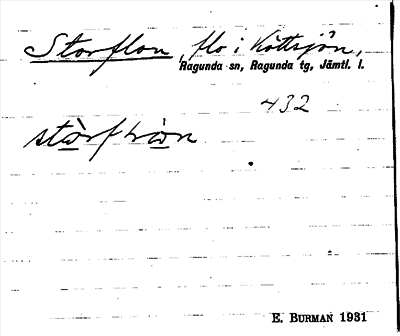 Storflon, flo i Köttsjön,
Ragunda sn, Ragunda tg, Jämtl. l.
432
E. BURMAN 1931